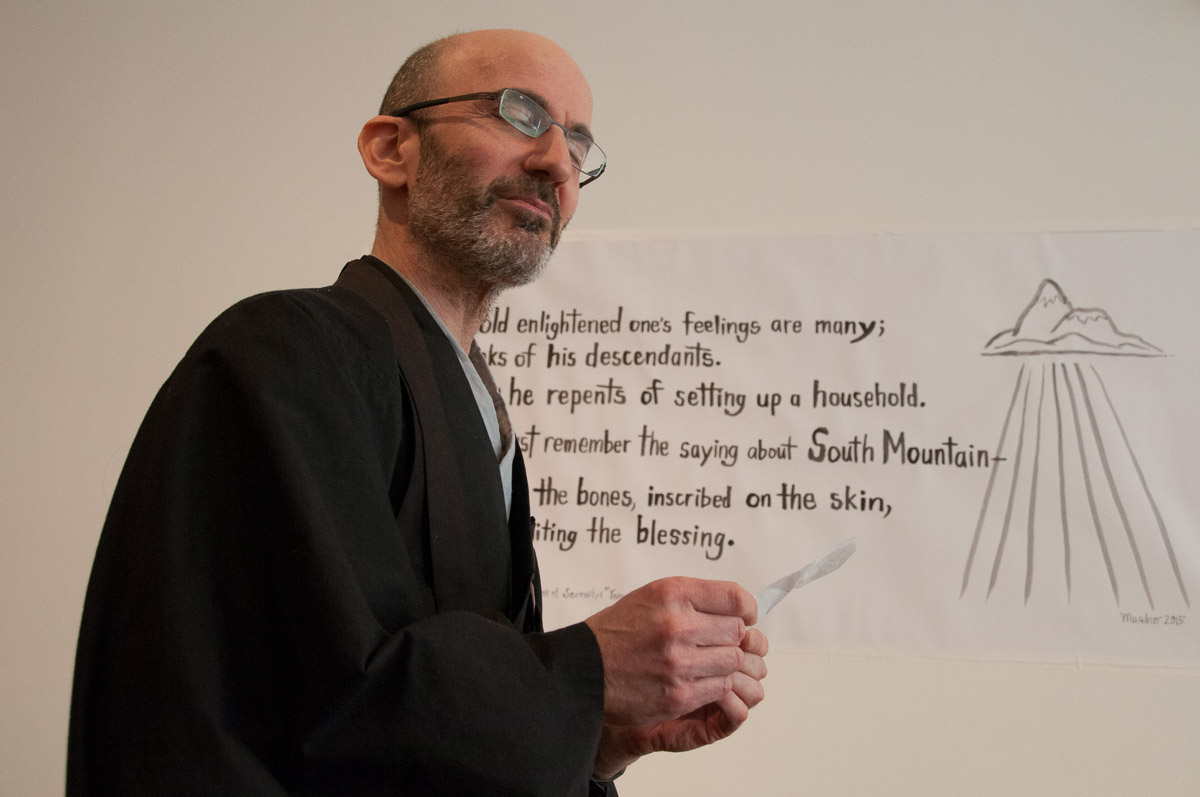 old enlightened one's feelings are many;
ks of his descendants.
he repents of setting up a household.
st remember the saying about South Mountain-
the bones, inscribed on the skin,
iting the blessing.
2015